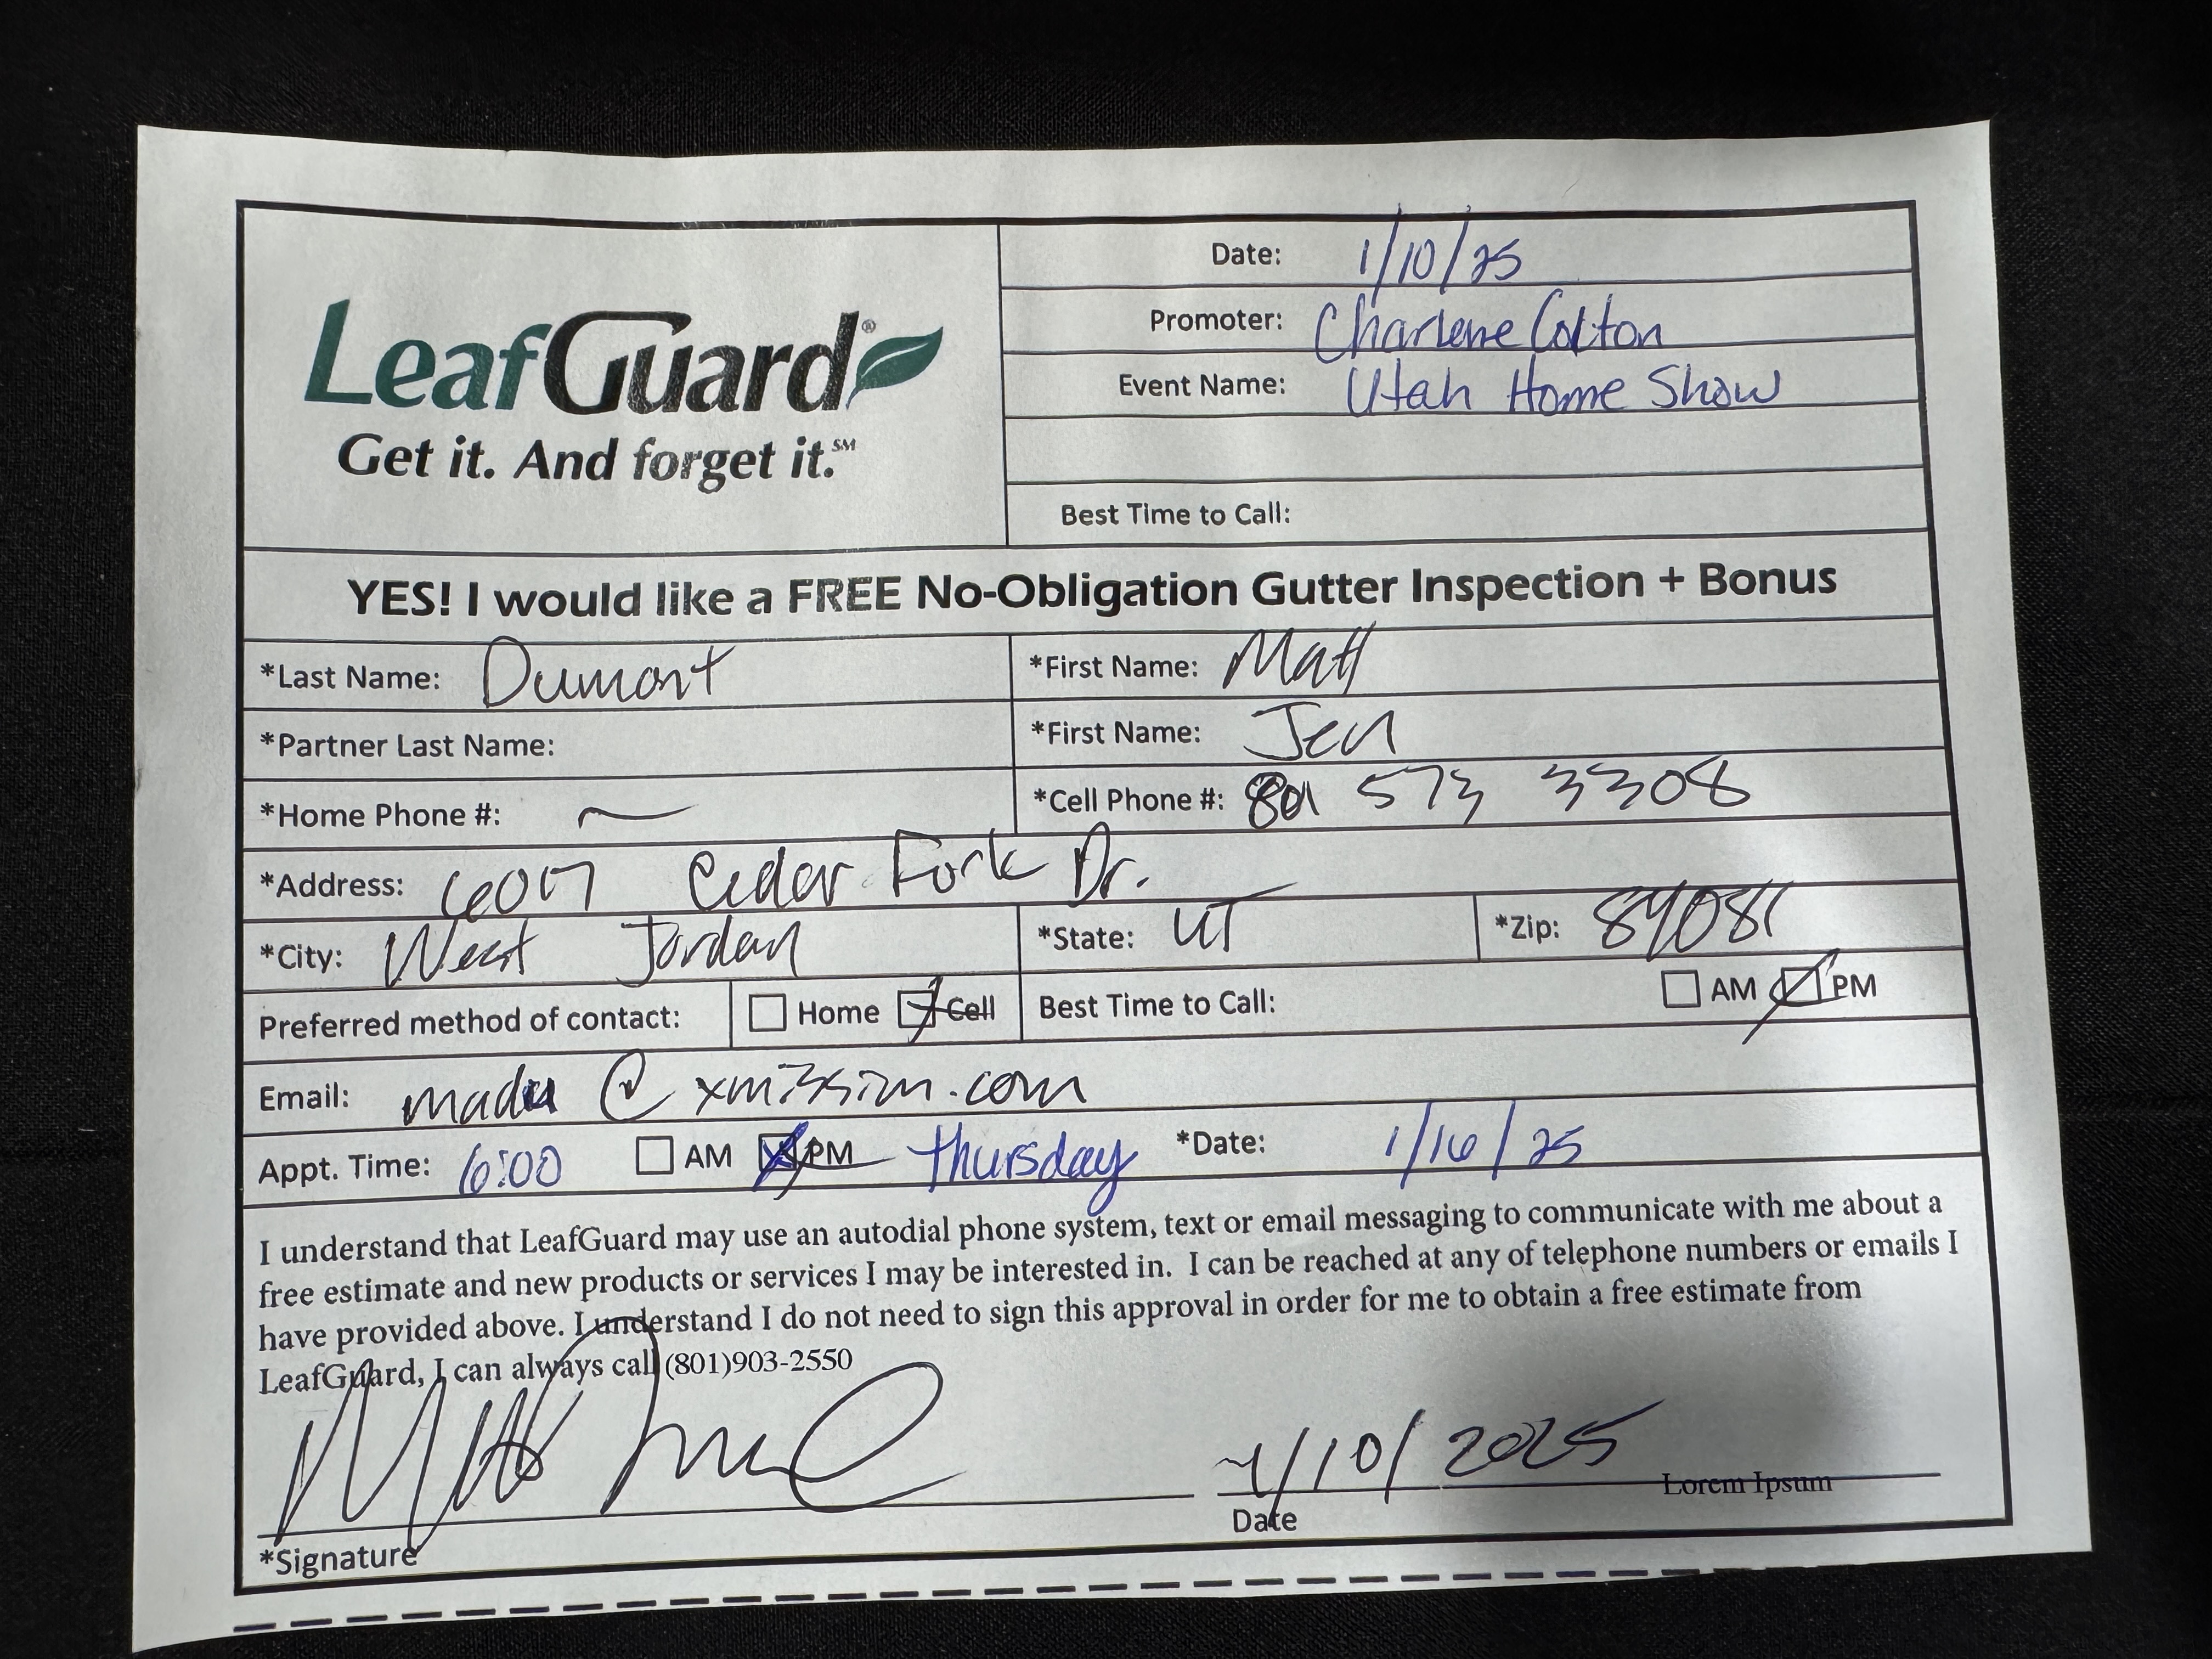 LeafGuard®
Get it. And forget it.℠
Date: 1/10/25
Promoter: Charlene Colton
Event Name: Utah Home Show
Best Time to Call:
YES! I would like a FREE No-Obligation Gutter Inspection + Bonus
*Last Name: Dumont *First Name: Matt
*Partner Last Name: *First Name: Jen
*Home Phone #: ~ *Cell Phone #: 801 573 3308
*Address: 6017 Cedar Fork Dr.
*City: West Jordan *State: UT *Zip: 84081
Preferred method of contact: Home Cell Best Time to Call: AM PM
Email: @ xmission.com
Appt. Time: 6:00 AM PM Thursday *Date: 1/16/25
I understand that LeafGuard may use an autodial phone system, text or email messaging to communicate with me about a
free estimate and new products or services I may be interested in. I can be reached at any of telephone numbers or emails I
have provided above. I understand I do not need to sign this approval in order for me to obtain a free estimate from
LeafGuard, I can always call (801)903-2550
1/10/2025
Lorem Ipsum
*Signature Date